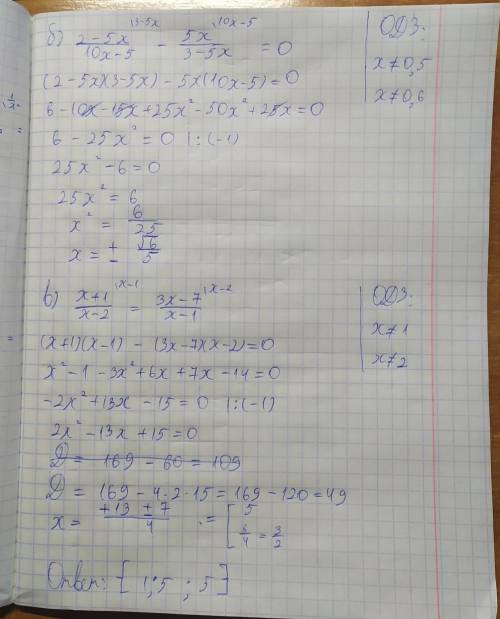 б) 2-5x / 10x-5 |3-5x - 5x / 3-5x |10x-5 = 0
ОДЗ:
x≠0,5
x≠0,6
(2-5x)(3-5x) - 5x(10x-5)=0
6-10x-15x+25x²-50x²+25x=0
6-25x²=0 |:(-1)
25x²-6=0
25x²=6
x² = 6/25
x = ± √6/5
в) x+1 / x-2 |x-1 = 3x-7 / x-1 |x-2
ОДЗ:
x≠1
x≠2
(x+1)(x-1) - (3x-7)(x-2)=0
x²-1-3x²+6x+7x-14=0
-2x²+13x-15=0 |:(-1)
2x²-13x+15=0
D= 169-60=109
D= 169-4·2·15=169-120=49
x= +13 ± 7 / 4 = [ 5
6/4 = 3/2
Ответ: { 1,5 ; 5 }